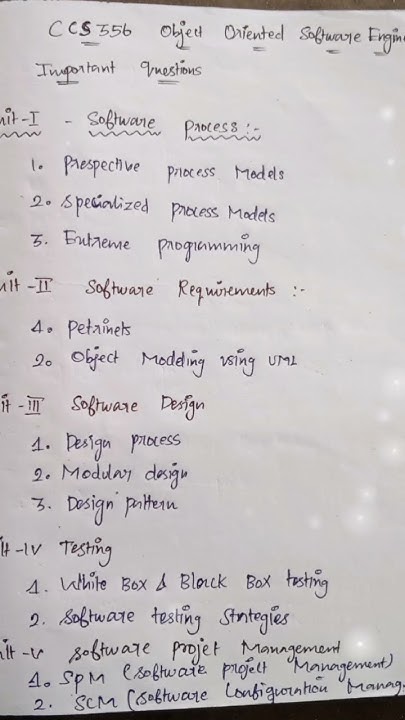 CCS356 Object Oriented Software Engine
Important Questions
nit-I - Software Process:-
1. Prespective process Models
2. Specialized process Models
3. Extreme programming
nit-II Software Requirements :-
1. Petrinets
2. Object Modeling using UML
it-III Software Design
1. Design process
2. Modular design
3. Design pattern
it-IV Testing
1. White Box & Black Box testing
2. Software testing Strategies
it-V Software Projet Management
1. SPM (Software project Management)
2. SCM (Software Configuration Manag